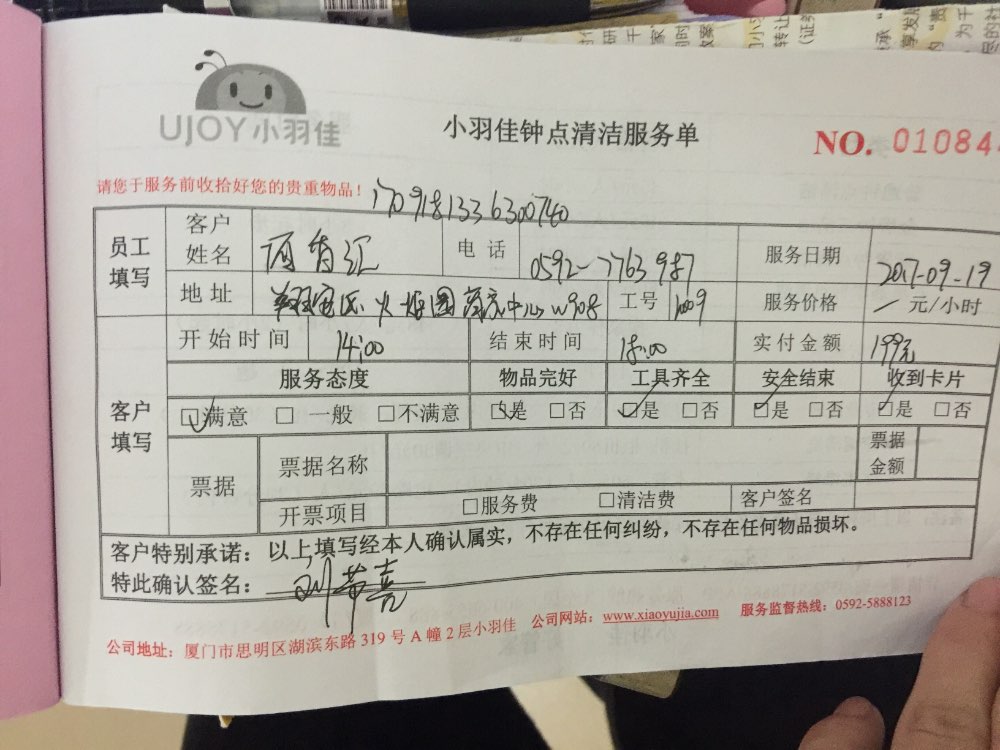 UJOY 小羽佳
小羽佳钟点清洁服务单
NO. 01084
请您于服务前收拾好您的贵重物品！
1709181336300740
员工填写
客户姓名
电话 0592-7763987
服务日期 2017-09-19
地址 翔安区 火炬园 w908
工号 1009
服务价格 一 元/小时
客户填写
开始时间 14:00
结束时间 18:00
实付金额 199元
服务态度 物品完好 工具齐全 安全结束 收到卡片
☑满意 □ 一般 □不满意 ☑是 □否 ☑是 □否 ☑是 □否 ☑是 □否
票据
票据名称
票据金额
开票项目 □服务费 □清洁费 客户签名
客户特别承诺：以上填写经本人确认属实，不存在任何纠纷，不存在任何物品损坏。
特此确认签名：
公司地址：厦门市思明区湖滨东路 319 号 A 幢 2 层小羽佳 公司网站：www.xiaoyujia.com 服务监督热线：0592-5888123